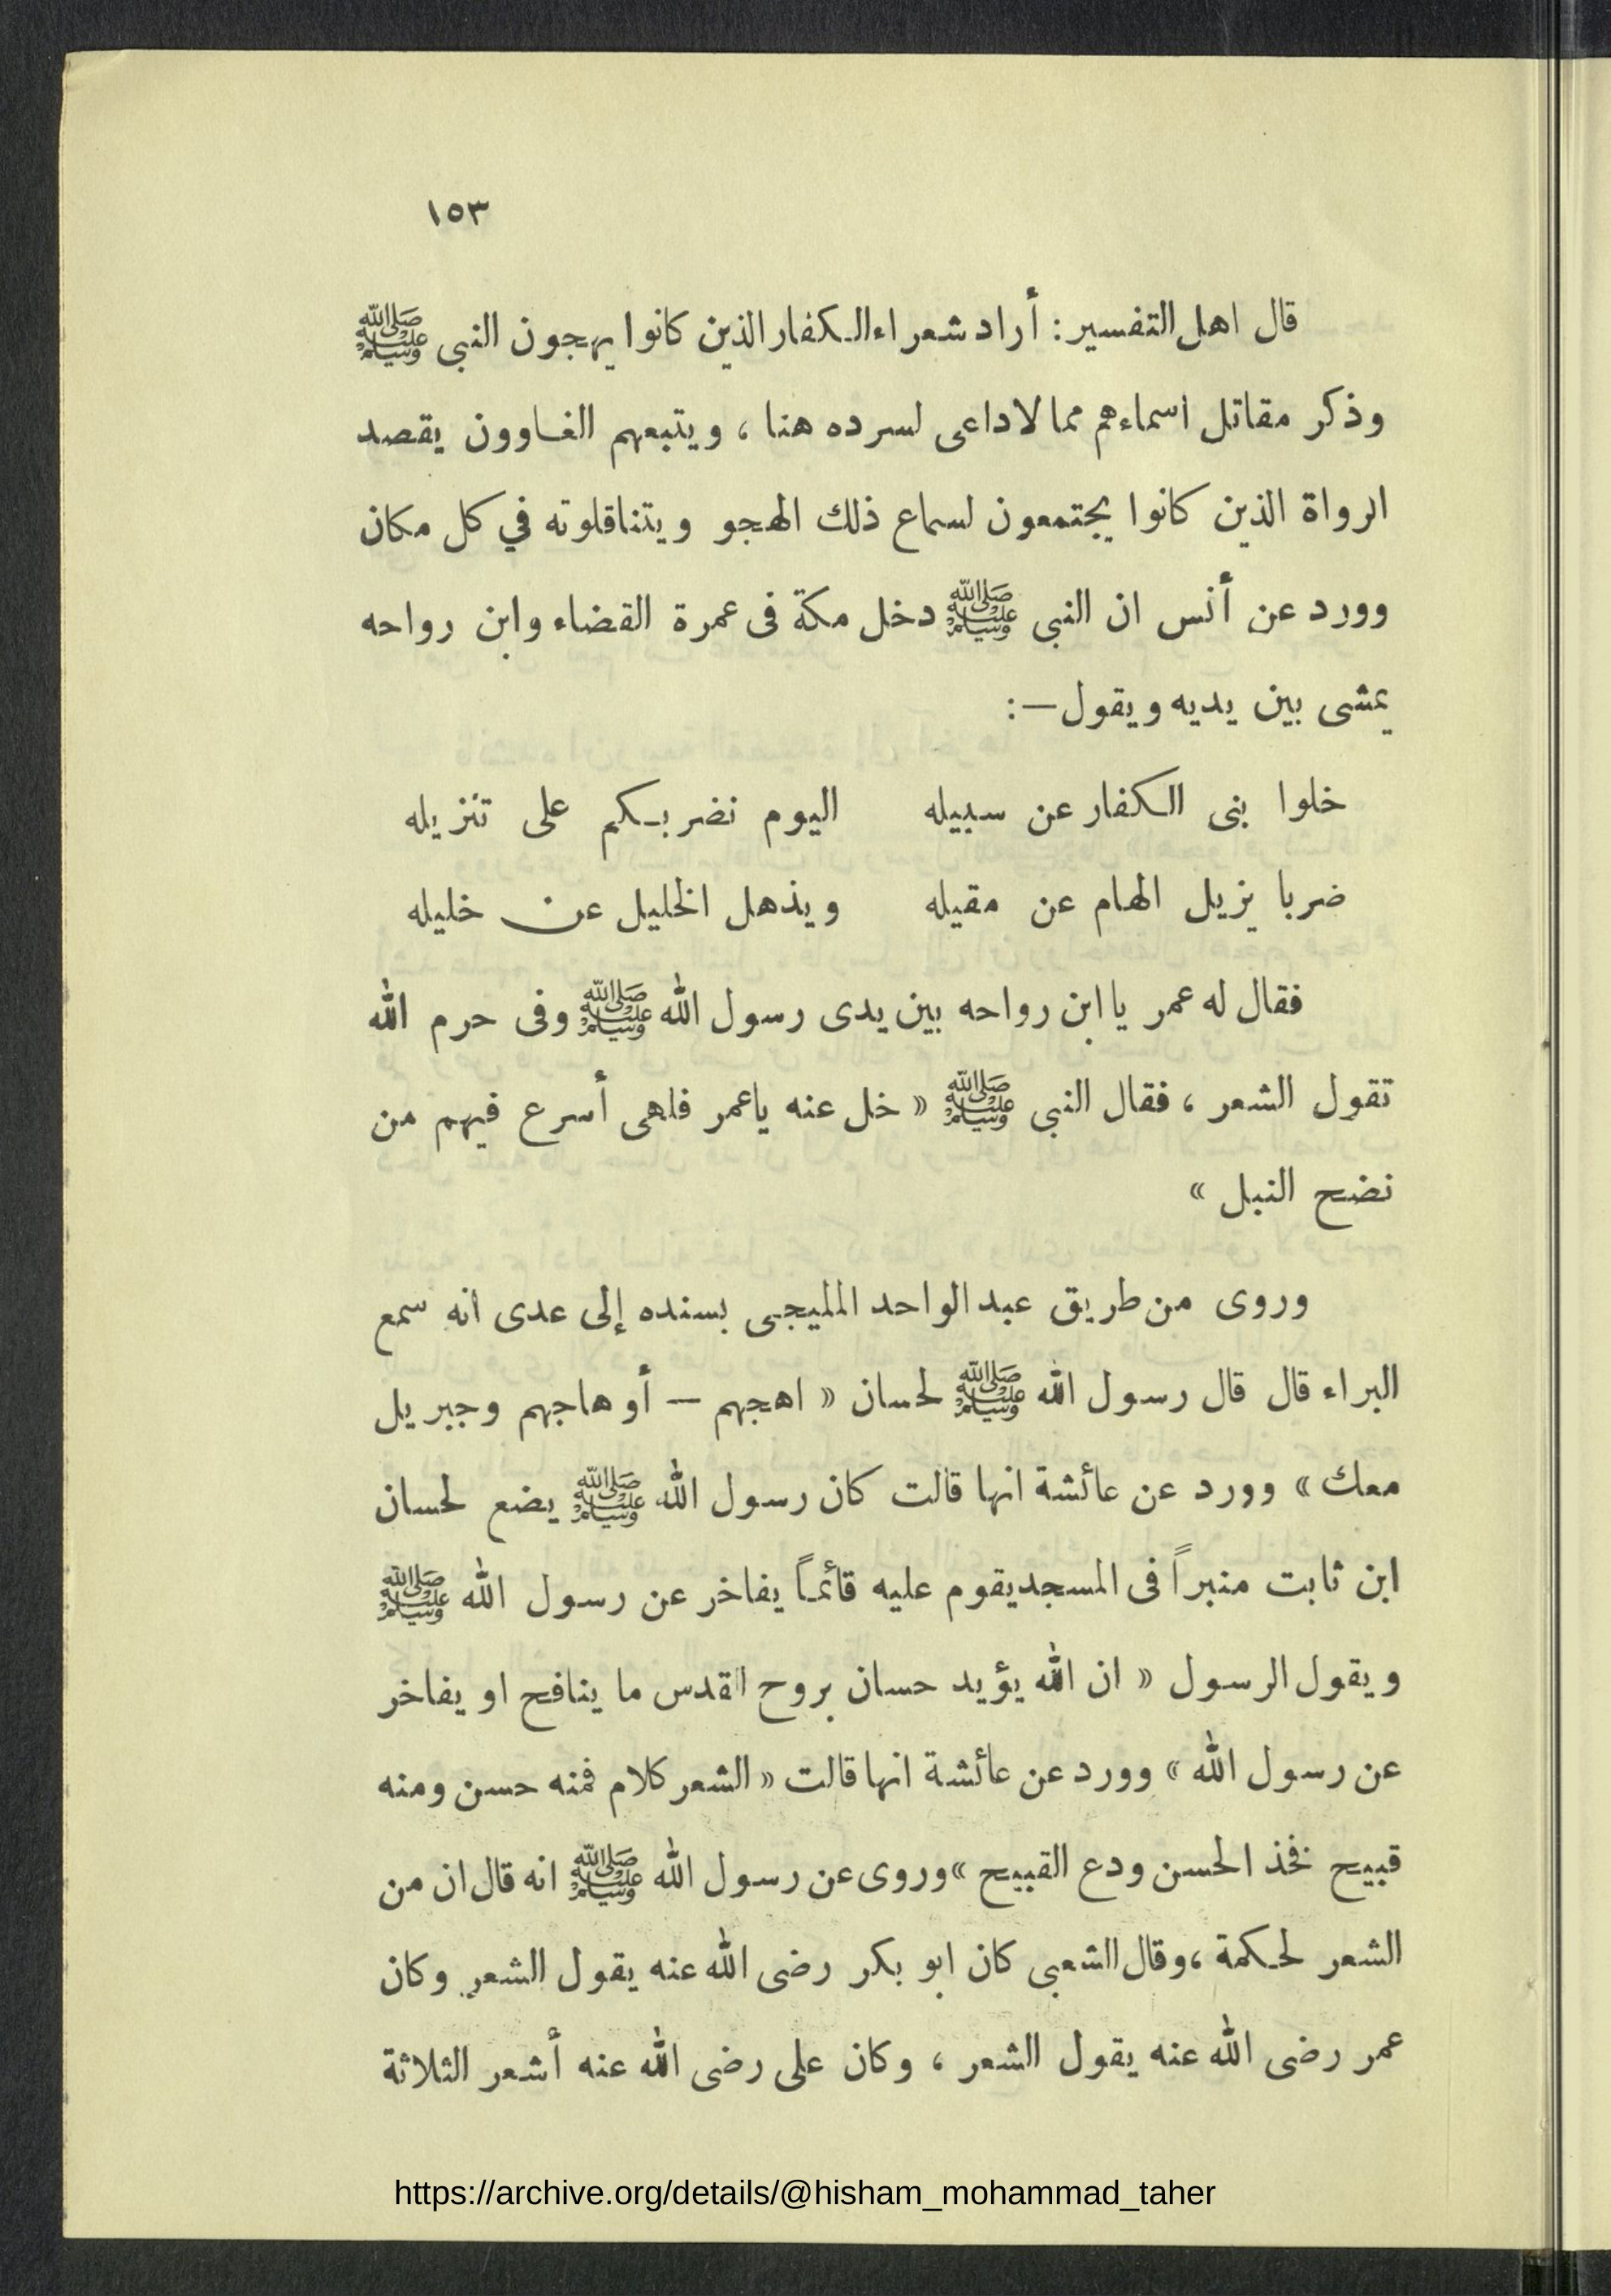 ١٥٣
قال اهل التفسير : أراد شعراء الكفار الذين كانوا يهجون النبى ﷺ
وذكر مقاتل اسماءهم مما لاداعى لسرده هنا ، ويتبعهم الغاوون يقصد
الرواة الذين كانوا يجتمعون لسماع ذلك الهجو ويتناقلوته في كل مكان
وورد عن أنس ان النبى ﷺ دخل مكة فى عمرة القضاء وابن رواحه
يمشى بين يديه ويقول — :
خلوا بنى الكفار عن سبيله اليوم نضربكم على تنزيله
ضربا يزيل الهام عن مقيله ويذهل الخليل عن خليله
فقال له عمر يا ابن رواحه بين يدى رسول الله ﷺ وفى حرم الله
تقول الشعر ، فقال النبى ﷺ « خل عنه ياعمر فلهى أسرع فيهم من
نضح النبل »
وروى من طريق عبد الواحد المليجى بسنده إلى عدى انه سمع
البراء قال قال رسول الله ﷺ لحسان « اهجهم — أو هاجهم وجبريل
معك » وورد عن عائشة انها قالت كان رسول الله ﷺ يضع لحسان
ابن ثابت منبراً فى المسجد يقوم عليه قائماً يفاخر عن رسول الله ﷺ
ويقول الرسول « ان الله يؤيد حسان بروح القدس ما ينافح او يفاخر
عن رسول الله » وورد عن عائشة انها قالت « الشعر كلام فمنه حسن ومنه
قبيح فخذ الحسن ودع القبيح » وروى عن رسول الله ﷺ انه قال ان من
الشعر لحكمة ، وقال الشعبى كان ابو بكر رضى الله عنه يقول الشعر وكان
عمر رضى الله عنه يقول الشعر ، وكان على رضى الله عنه أشعر الثلاثة
https://archive.org/details/@hisham_mohammad_taher